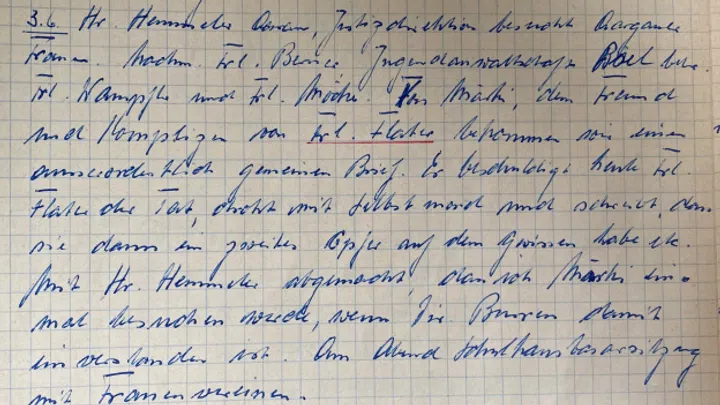 3.6. Hr. Hemmeler Aarau, Justizdirektion besucht Aargauer
Frauen. Nachm. Frl. Jugendanwaltschaft
Frl. Kämpfer und Frl. Von Märki, dem Freund
und Komplizen von Frl. Flater bekommen wir einen
ausserordentlich gemeinen Brief. Er beschuldigt heute Frl.
Flater der Tat, droht mit Selbstmord und schreibt, dass
sie dann ein zweites Opfer auf dem Gewissen habe etc.
Mit Hr. Hemmeler abgemacht, dass ich Märki ein=
mal besuchen werde, wenn Dir. damit
einverstanden ist. Am Abend Schulhausbasarsitzung
mit Frauenvereinen.